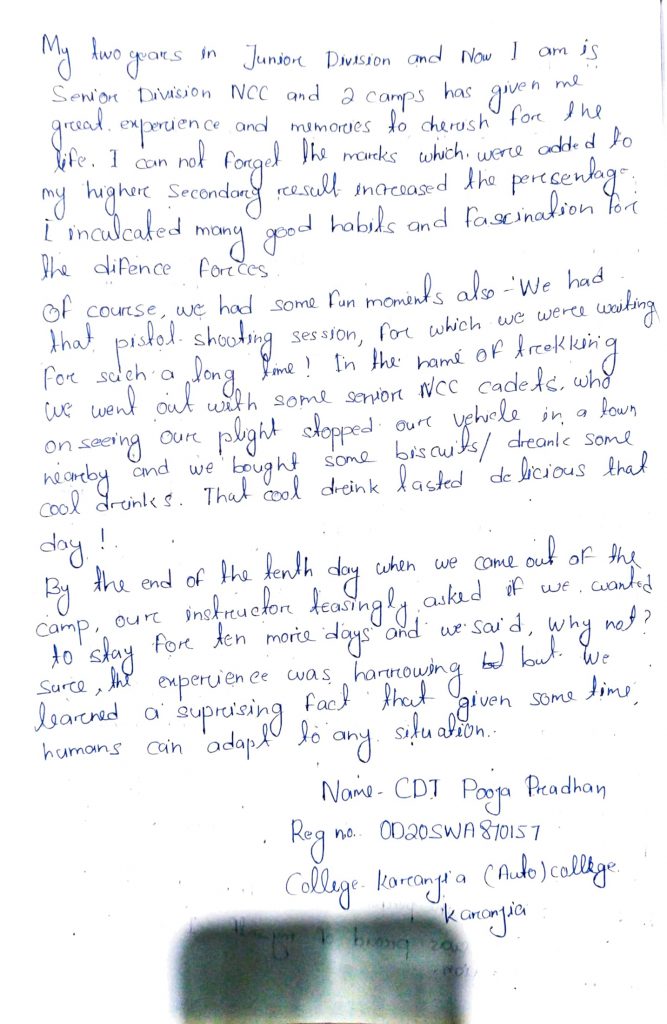 My two years in Junior Division and Now I am is
Senior Division NCC and 2 camps has given me
great experience and memories to cherish for the
life. I can not forget the marks which were added to
my higher secondary result increased the percentage.
i inculcated many good habits and fascination for
the difence forces
Of course, we had some fun moments also - We had
that pistol shooting session, for which we were waiting
for such a long time! In the name of trekking
we went out with some senior NCC cadets, who
on seeing our plight stopped our vehicle in a town
nearby and we bought some biscuits/ dreank some
cool drinks. That cool dreink tasted delicious that
day!
By the end of the tenth day when we came out of the
camp, our instructor teasingly asked if we wanted
to stay for ten more days and we said, why not?
Sure, the experience was harrowing but we
learned a suprising fact that given some time,
humans can adapt to any situation.
Name- CDT Pooja Pradhan
Reg no. OD20SWA870157
College- Karanjia (Auto) college
Karanjia